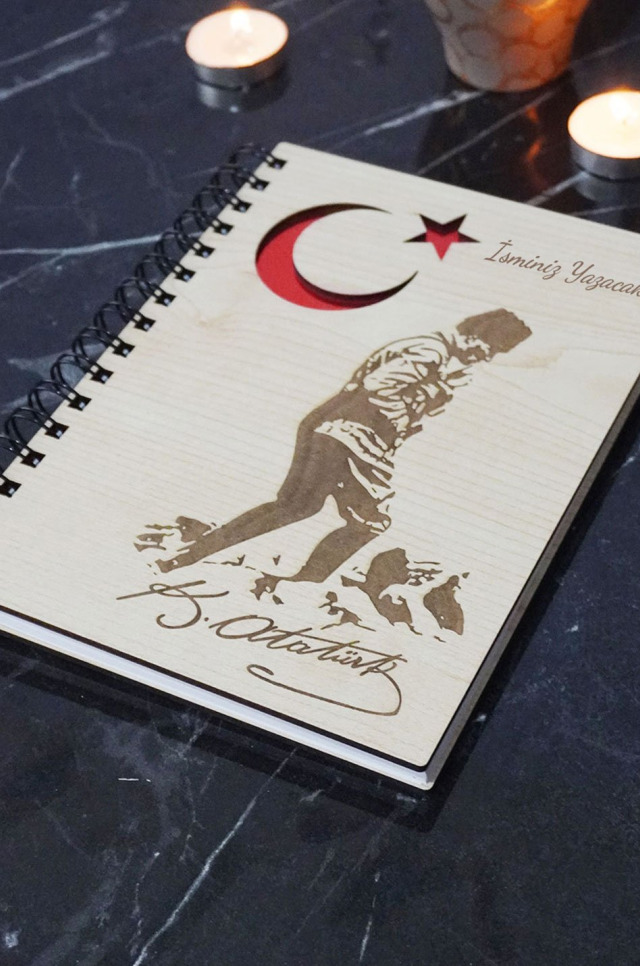 İsminiz Yazacak
K. Atatürk